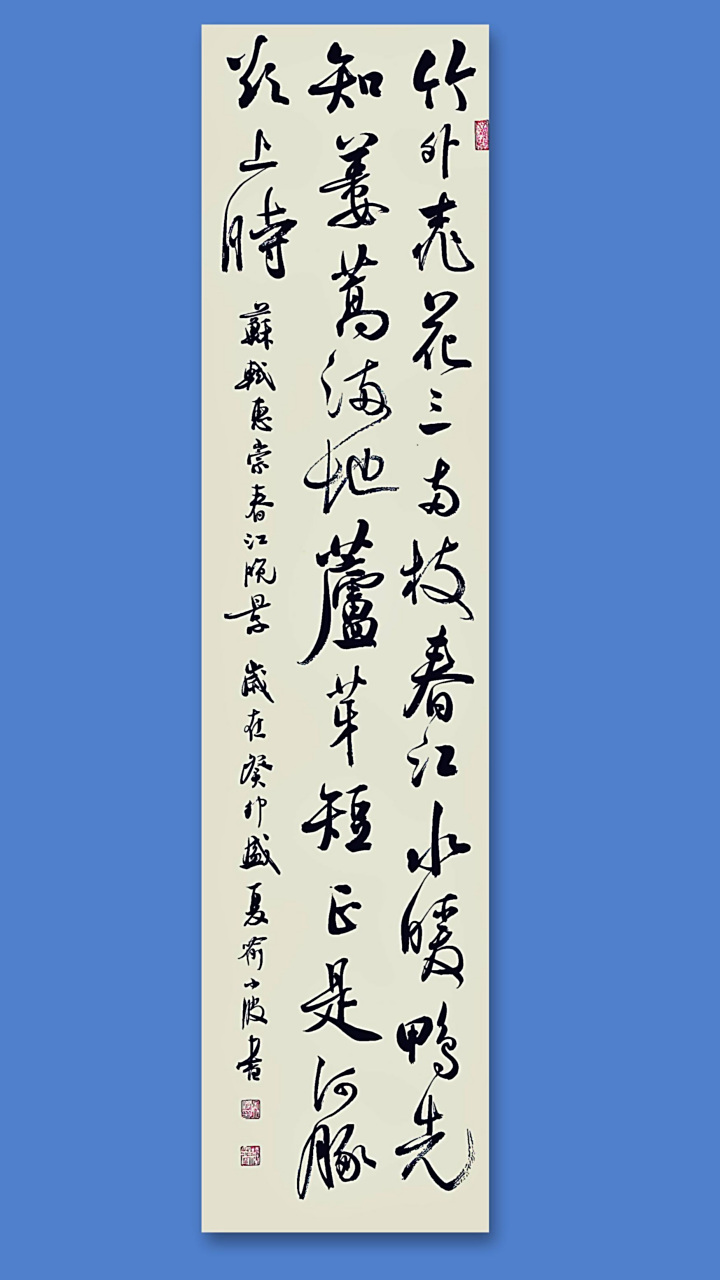 竹外桃花三兩枝春江水暖鴨先
知蔞蒿滿地蘆芽短正是河豚
欲上時 蘇軾惠崇春江晚景 歲在癸卯盛夏俞小波書